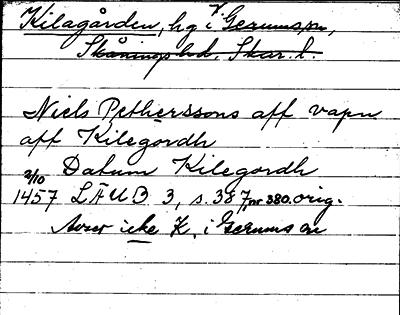 Kilagården, hg i Gerums sn,
Skånings hd. Skar. l.
Niels Pethersons aff vapn
aff Kilegordh
Datum Kilegordh
2/10
1457 LÄUB 3, s. 387, nr 380. orig.
Avser icke K. i Gerums sn